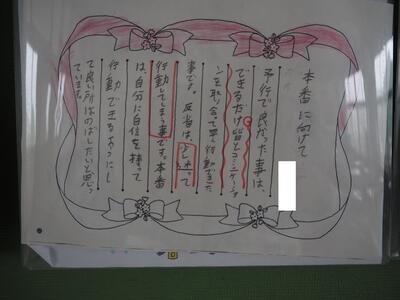 本番に向けて
予行で良かった事は、
できるだけ皆とコミュニケーショ
ンを取り合って早く行動できた
事です。反省は、少し迷って
行動してしまう事です。本番
は、自分に自信を持って
行動できるようにし
て良い所はのばしたいと思っ
ています。